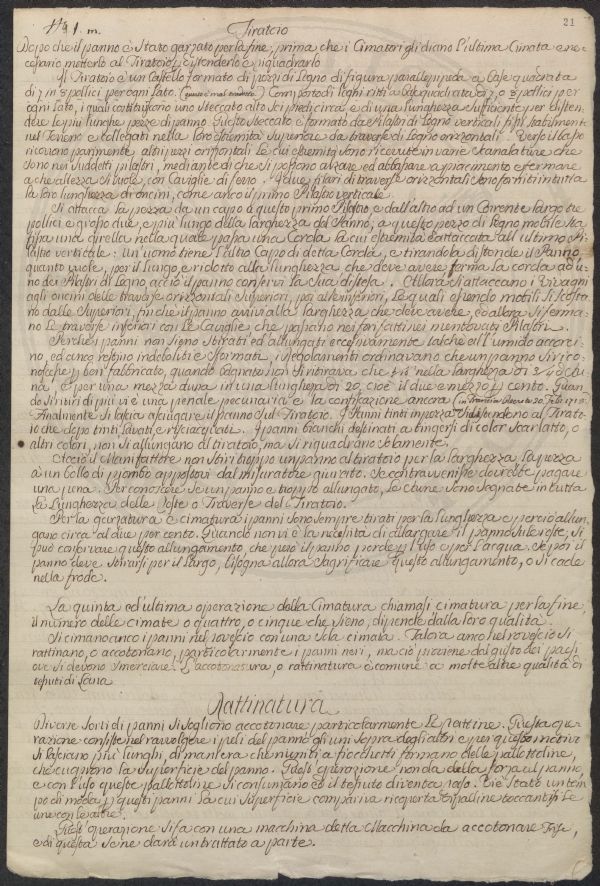 21
Tiratoio
Dopo che il panno è stato garzato per la fine, prima che i Cimatori gli diano l'ultima Cimata è ne-
cessario metterlo al Tiratoio p. istenderlo e riquadrarlo
Il Tiratoio è un Castello formato di pezzi di Legno di figura
di 7 in 8 pollici per ogni lato. Composto di legni ritti a base quadrata di 7, o 8 pollici per
ogni lato, i quali costituiscono uno steccato alto sei piedi circa, e di una lunghezza sufficiente per disten-
dere le più lunghe pezze di panno. Questo steccato è formato da Pilastri di Legno verticali fissi stabilmente
nel Terreno e collegati nella loro estremità Superiore da traverse di Legno orizzontali. Verso il basso
ricevono parimente altri pezzi orizzontali le cui estremità sono ricevute in varie scanalature che
sono nei suddetti pilastri, mediante di che si possono alzare ed abbassare a piacimento e fermare
a che altezza si vuole, con Caviglie di ferro. I due filari di traverse orizzontali sono forniti in tutta
la loro lunghezza di oncini, come anco il primo Pilastro verticale.
Si attacca la pezza da un capo a questo primo Pilastro e dall'altro ad un Corrente largo tre
pollici e grosso due, e più lungo della larghezza del Panno, a questo pezzo di Legno mobile sta
fissa una girella nella quale passa una Corda la cui estremità è attaccata all'ultimo Pi-
lastro verticale: Un uomo tiene l'altro Capo di detta Corda, e tirandola distende il Panno
quanto vuole, per il lungo, e ridotto alla lunghezza che deve avere, ferma la corda ad u-
no dei Pilastri di Legno acciò il panno conservi la sua distesa. Allora si attaccano i Vivagni
agli oncini delle traverse orizzontali Superiori, poi alle inferiori, le quali essendo mobili si scosta-
no dalle Superiori, finchè il panno arrivi alla larghezza che deve avere, ed allora si ferma-
no le traverse inferiori con le Caviglie che passano nei fori fatti nei mentovati Pilastri.
Perchè i panni non sieno stirati ed allungati eccessivamente talchè all'umido accorci-
no, ed anco restino indeboliti e sformati, i regolamenti ordinavano che un panno si rico-
noscesse p. ben fabbricato, quando bagnato non si ritirava che
per una mezza dura in una lunghezza di 20 cioè il due e mezzo p. cento. Quan-
do si ritiri di più vi è una penale pecuniaria e la confiscazione ancora
Finalmente si lascia asciugare il panno sul Tiratoio. I Panni tinti in pezza si distendono al Tirato-
io che dopo tinti lavati e risciacquati. I panni bianchi destinati a tingersi di color Scarlatto, o
altri colori, non si allungano al tiratoio, ma si riquadrano solamente.
Acciò il Manifattore non stiri troppo un panno al tiratoio per la larghezza, la pezza
à un bollo di piombo appostovi dal misuratore giurato. Se contravvenisse dovrebbe pagare
una pena. Per conoscere se un panno è troppo allungato, le Canne sono segnate in tutta
la Lunghezza delle Coste o Traverse del Tiratoio.
Per la garzatura e cimatura i panni sono sempre tirati per la lunghezza e perciò allun-
gano circa al due per cento. Quando non vi è la necessità di allargare il panno sulle coste, si
può conservare questo allungamento, che però il panno perde p. l'uso e per l'acqua. Se poi il
panno deve stirarsi per il largo, bisogna allora sagrificare questo allungamento, o si cade
nella frode.
La quinta ed ultima operazione della Cimatura chiamasi cimatura per la fine,
il numero delle cimate o quattro, o cinque che sieno, dipende dalla loro qualità.
Si cimano anco i panni nel rovescio con una sola cimata. Talora anco nel rovescio si
rattinano, o accotonano, particolarmente i panni neri, ma ciò proviene dal gusto dei paesi
ove si devono smerciare. L'accotonatura, o rattinatura è comune a molte altre qualità di
tessuti di Lana.
Rattinatura
Diverse sorti di panni si sogliono accotonare particolarmente le rattine. Questa ope-
razione consiste nel ravvolgere i peli del panno gli uni sopra degli altri e per questo motivo
si lasciano più lunghi, di maniera che riuniti a fiocchetti formano delle pallottoline,
che cuoprono la superficie del panno. Questa operazione non dà della forza al panno,
e con l'uso queste pallottoline si consumano ed il tessuto diventa raso. Vi è stato un tem-
po di moda p. questi panni la cui superficie compariva ricoperta di palline toccantisi le
une con le altre.
Questa operazione si fa con una macchina detta Macchina da accotonare
e di questa se ne darà un trattato a parte.